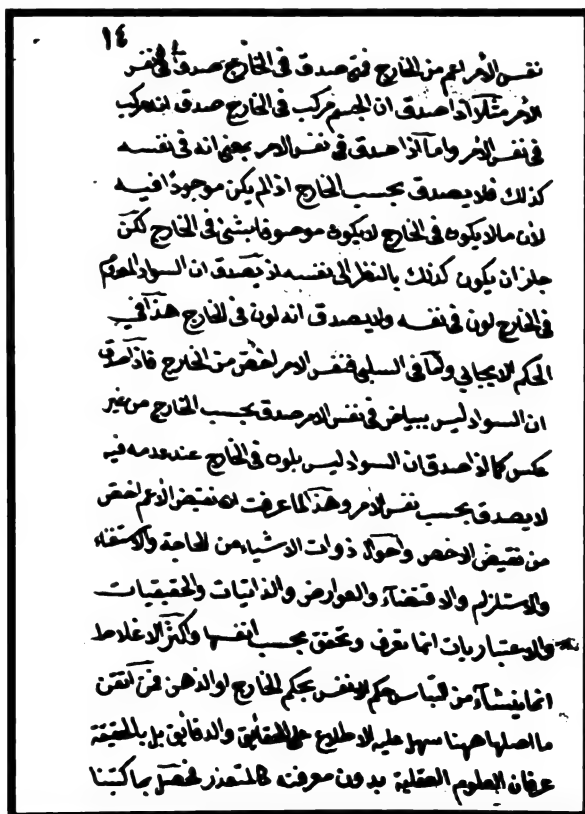 ١٤
نفس الأمر اعم من الخارج فمتى صدق فى الخارج صدق فى نفس
الأمر مثلا اذا صدق ان الجسم مركب فى الخارج صدق انه مركب
فى نفس الأمر واما اذا صدق فى نفس الامر بمعنى انه فى نفسه
كذلك فلا يصدق بحسب الخارج اذا لم يكن موجودا فيه
لأن مالا يكون فى الخارج لا يكون موصوفا بشئ فى الخارج لكن
جاز ان يكون كذلك بالنظر الى نفسه اذ يصدق ان السواد المعدوم
فى الخارج لون فى نفسه ولا يصدق انه لون فى الخارج هذا فى
الحكم الايجابي واما فى السلبى فنفس الامر اخص من الخارج فاذا صدق
ان السواد ليس ببياض فى نفس الامر صدق بحسب الخارج من غير
عكس كما اذا صدق ان السواد ليس بلون فى الخارج عند عدمه فيه
لا يصدق بحسب نفس الأمر وهذا لما عرفت ان نقيض الاعم اخص
من نقيض الاخص واحوال ذوات الاشياء من الحاجة والاستغناء
والاستلزام والاقتضاء والعوارض والذاتيات والحقيقيات
والاعتباريات انما تعرف وتحقق بحسب انفسها واكثر الاغلاط
انما ينشاء من التباس حكم الانفس بحكم الخارج او الذهن فمن اتقن
ما اصلها ههنا سهل عليه الاطلاع على الحقائق والدقايق بل بالحقيقة
عرفان العلوم العقلية بدون معرفته كالمتعذر فحصل بما كتبنا